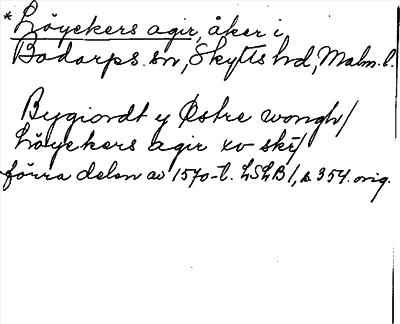 * Löyckers agir, åker i
Bodarps sn, Skytts hd, Malm. l.
Bygiordt y Østre wongh/
Löyckers agir xv ski/
förra delen av 1570-t. LSLB 1, s 354. orig.